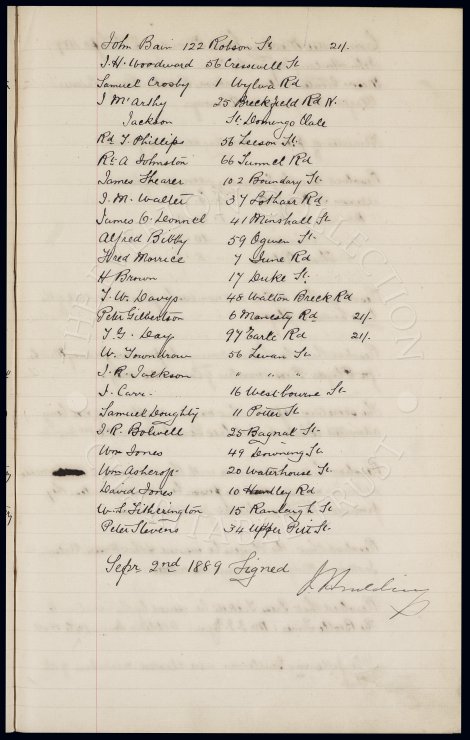 John Bain 122 Robson St 21/.
J. H. Woodward 56 Cresswell St
Samuel Crosby 1 Wylva Rd
J McArthy 25 Breckfield Rd N.
Jackson St Domingo Vale
Rd T. Phillips 56 Leeson St.
Rt. A Johnston 66 Tunnel Rd
James Shearer 102 Boundary St.
J. M. Walter 37 Lothair Rd
James O. Donnel 41 Minshall St
Alfred Bibby 59 Ogwen St
Fred Morrice 7 June Rd
H Brown 17 Duke St.
T. W. Davys 45 Walton Breck Rd
Peter Gilbertson 6 Manesty Rd 21/.
T. G. Day 97 Earle Rd 21/.
W. Towndrow 56 Level St
J. R. Jackson " " "
J. Carr 16 Westbourne St
Samuel Doughty 11 Potter St
J. R. Bolwell 25 Bagnal St
Wm Jones 49 Downing St
Wm Ashcroft 20 Waterhouse St
David Jones 10 Rd
W. S. Fitherington 15 Ranleigh St
Peter Stevens 34 Upper Pitt St.
Sepr 2nd 1889 Signed